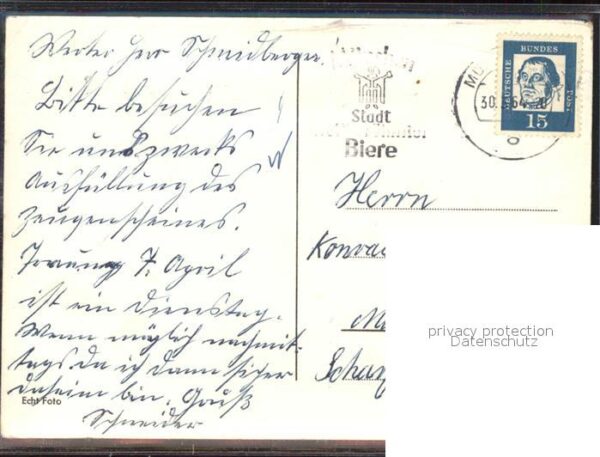 Werter Herr Schmidberger
Bitte besuchen
Sie uns zwecks
Ausfüllung des
Zeugenscheines.
Trauung 7. April
ist ein Dienstag.
Wenn möglich nachmit-
tags da ich dann sicher
daheim bin. Gruß
Schneider
Echt Foto
München
Stadt
Biere
MÜ
30.
64
20
DEUTSCHE BUNDESPOST
15
Herrn
Konrad
Schan
privacy protection
Datenschutz